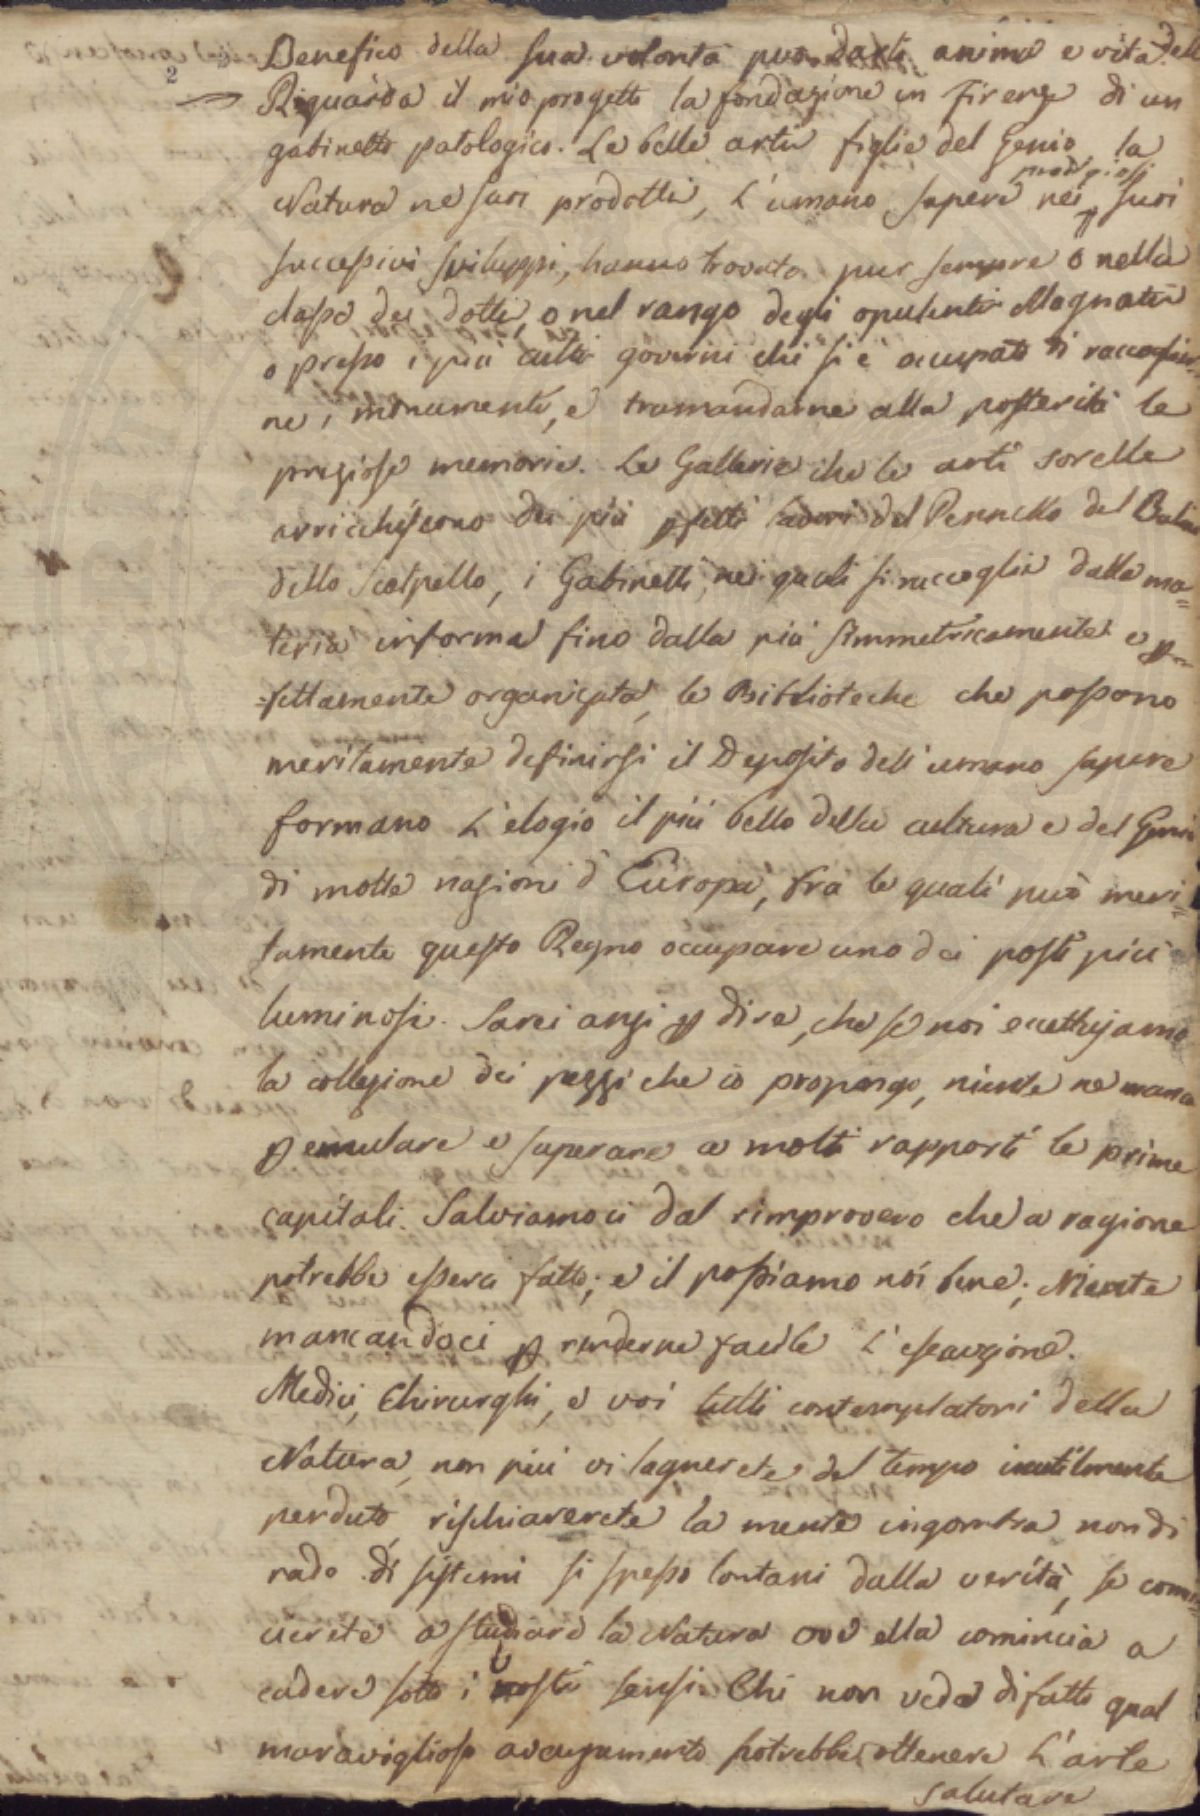 2
Benefico della sua volontà può darli anima e vita
Riguarda il mio progetto la fondazione in Firenze di un
gabinetto patologico. Le belle arti figlie del Genio, la
Natura ne suoi prodotti, L'umano sapere nei prodigiosi suoi
successivi sviluppi, hanno trovato pur sempre o nella
classe dei dotti, o nel rango degli opulenti Magnati
o presso i più culti governi chi si è occupato di raccoglier=
ne i monumenti, e tramandarne alla posterità le
preziose memorie. Le Gallerie che le arti sorelle
arricchiscono dei più pfetti lavori del Pennello del Bulino
dello Scalpello, i Gabinetti, nei quali si raccoglie dalla ma=
teria informa fino dalla più simmetricamente e p=
=fettamente organizata, le Biblioteche che possono
meritamente definirsi il Deposito dell'umano sapere
formano L'elogio il più bello della cultura e del Genio
di molte nazioni d'Europa, fra le quali può meri=
tamente questo Regno occupare uno dei posti più
luminosi. Sarei anzi p dire, che se noi eccettujamo
la collezione dei pezzi che io propongo, niente ne manca
p emulare e superare a molti rapporti le prime
capitali. Salviamoci dal rimprovero che a ragione
potrebbe esserci fatto; e il possiamo noi bene; Niente
mancandoci p renderne facile L'esecuzione.
Medici, Chirurghi, e voi tutti contemplatori della
Natura, non più vi lagnerete del tempo inutilmente
perduto, rischiarerete la mente ingombra non di
rado di sistemi si spesso lontani dalla verità, se comin=
cierete a studiare la Natura ove ella comincia a
cadere sotto i vostri sensi. Chi non vede difatto qual
maraviglioso avanzamento potrebbe ottenere L'arte
salutare